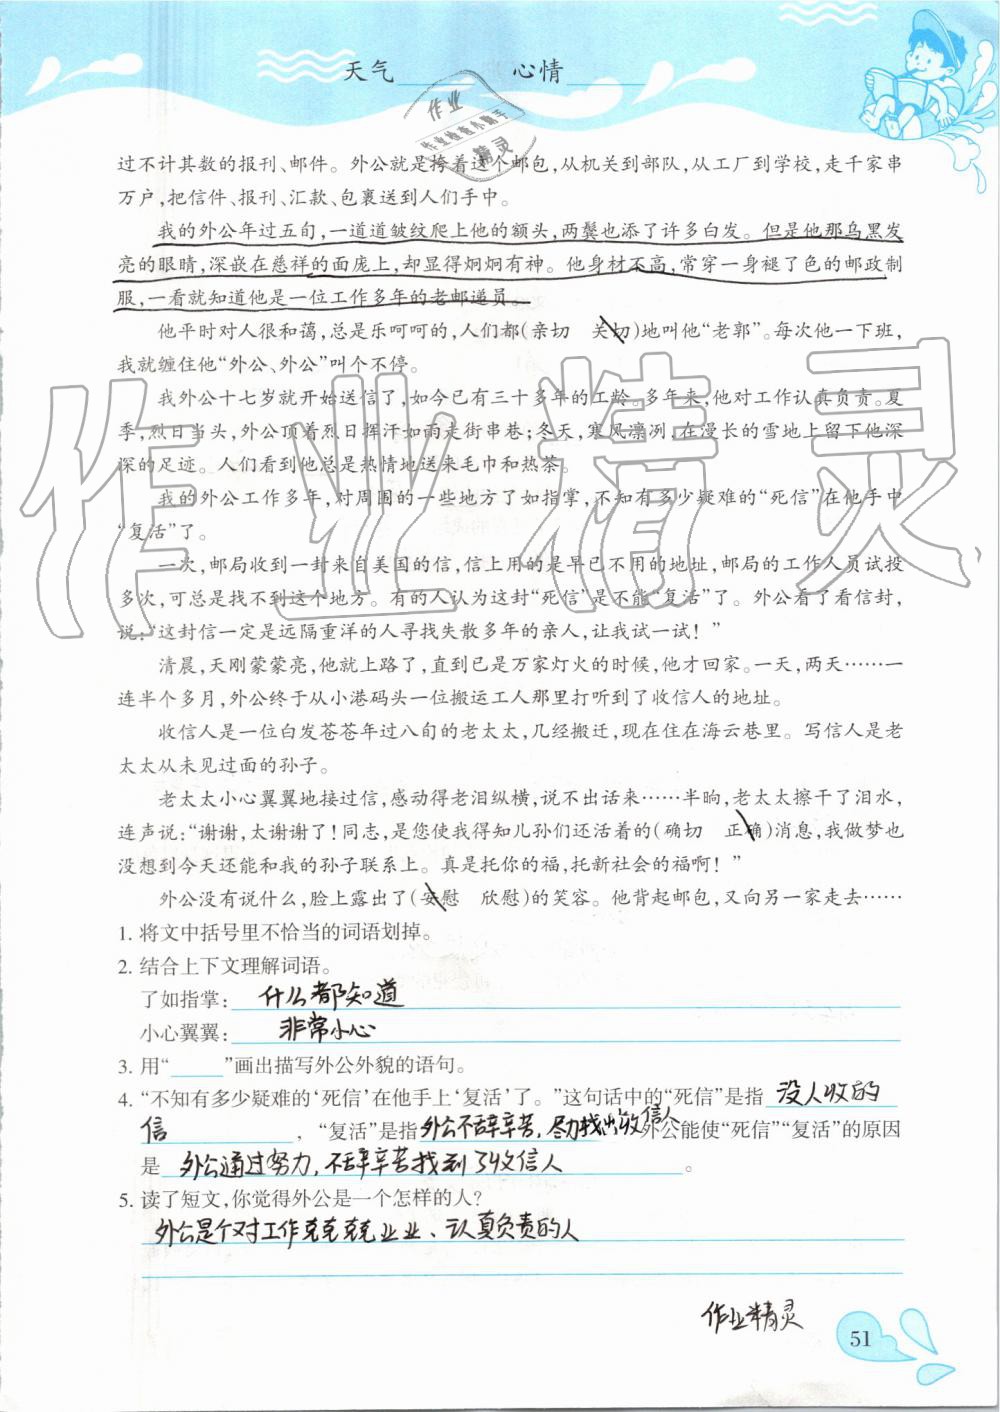 天气 心情
作业
作业检查小助手
精灵
过不计其数的报刊、邮件。外公就是挎着这个邮包,从机关到部队,从工厂到学校,走千家串
万户,把信件、报刊、汇款、包裹送到人们手中。
我的外公年过五旬,一道道皱纹爬上他的额头,两鬓也添了许多白发。但是他那乌黑发
亮的眼睛,深嵌在慈祥的面庞上,却显得炯炯有神。他身材不高,常穿一身褪了色的邮政制
服,一看就知道他是一位工作多年的老邮递员。
他平时对人很和蔼,总是乐呵呵的,人们都(亲切 关切)地叫他“老郭”。每次他一下班,
我就缠住他“外公、外公”叫个不停。
我外公十七岁就开始送信了,如今已有三十多年的工龄。多年来,他对工作认真负责。夏
季,烈日当头,外公顶着烈日挥汗如雨走街串巷;冬天,寒风凛冽,在漫长的雪地上留下他深
深的足迹。人们看到他总是热情地送来毛巾和热茶。
我的外公工作多年,对周围的一些地方了如指掌,不知有多少疑难的“死信”在他手中
“复活”了。
一次,邮局收到一封来自美国的信,信上用的是早已不用的地址,邮局的工作人员试投
多次,可总是找不到这个地方。有的人认为这封“死信”是不能“复活”了。外公看了看信封,
说:“这封信一定是远隔重洋的人寻找失散多年的亲人,让我试一试!”
清晨,天刚蒙蒙亮,他就上路了,直到已是万家灯火的时候,他才回家。一天,两天……一
连半个多月,外公终于从小港码头一位搬运工人那里打听到了收信人的地址。
收信人是一位白发苍苍年过八旬的老太太,几经搬迁,现在住在海云巷里。写信人是老
太太从未见过面的孙子。
老太太小心翼翼地接过信,感动得老泪纵横,说不出话来……半晌,老太太擦干了泪水,
连声说:“谢谢,太谢谢了!同志,是您使我得知儿孙们还活着的(确切 正确)消息,我做梦也
没想到今天还能和我的孙子联系上。真是托你的福,托新社会的福啊!”
外公没有说什么,脸上露出了(安慰 欣慰)的笑容。他背起邮包,又向另一家走去……
1. 将文中括号里不恰当的词语划掉。
2. 结合上下文理解词语。
了如指掌: 什么都知道
小心翼翼: 非常小心
3. 用“____”画出描写外公外貌的语句。
4. “不知有多少疑难的‘死信’在他手上‘复活’了。”这句话中的“死信”是指 没人收的
信 ,“复活”是指 外公不辞辛苦,尽力找出收信人 外公能使“死信”“复活”的原因
是 外公通过努力,不辞辛苦找到了收信人 。
5. 读了短文,你觉得外公是一个怎样的人?
外公是个对工作克克克克业业、认真负责的人
作业精灵
51
作业精灵